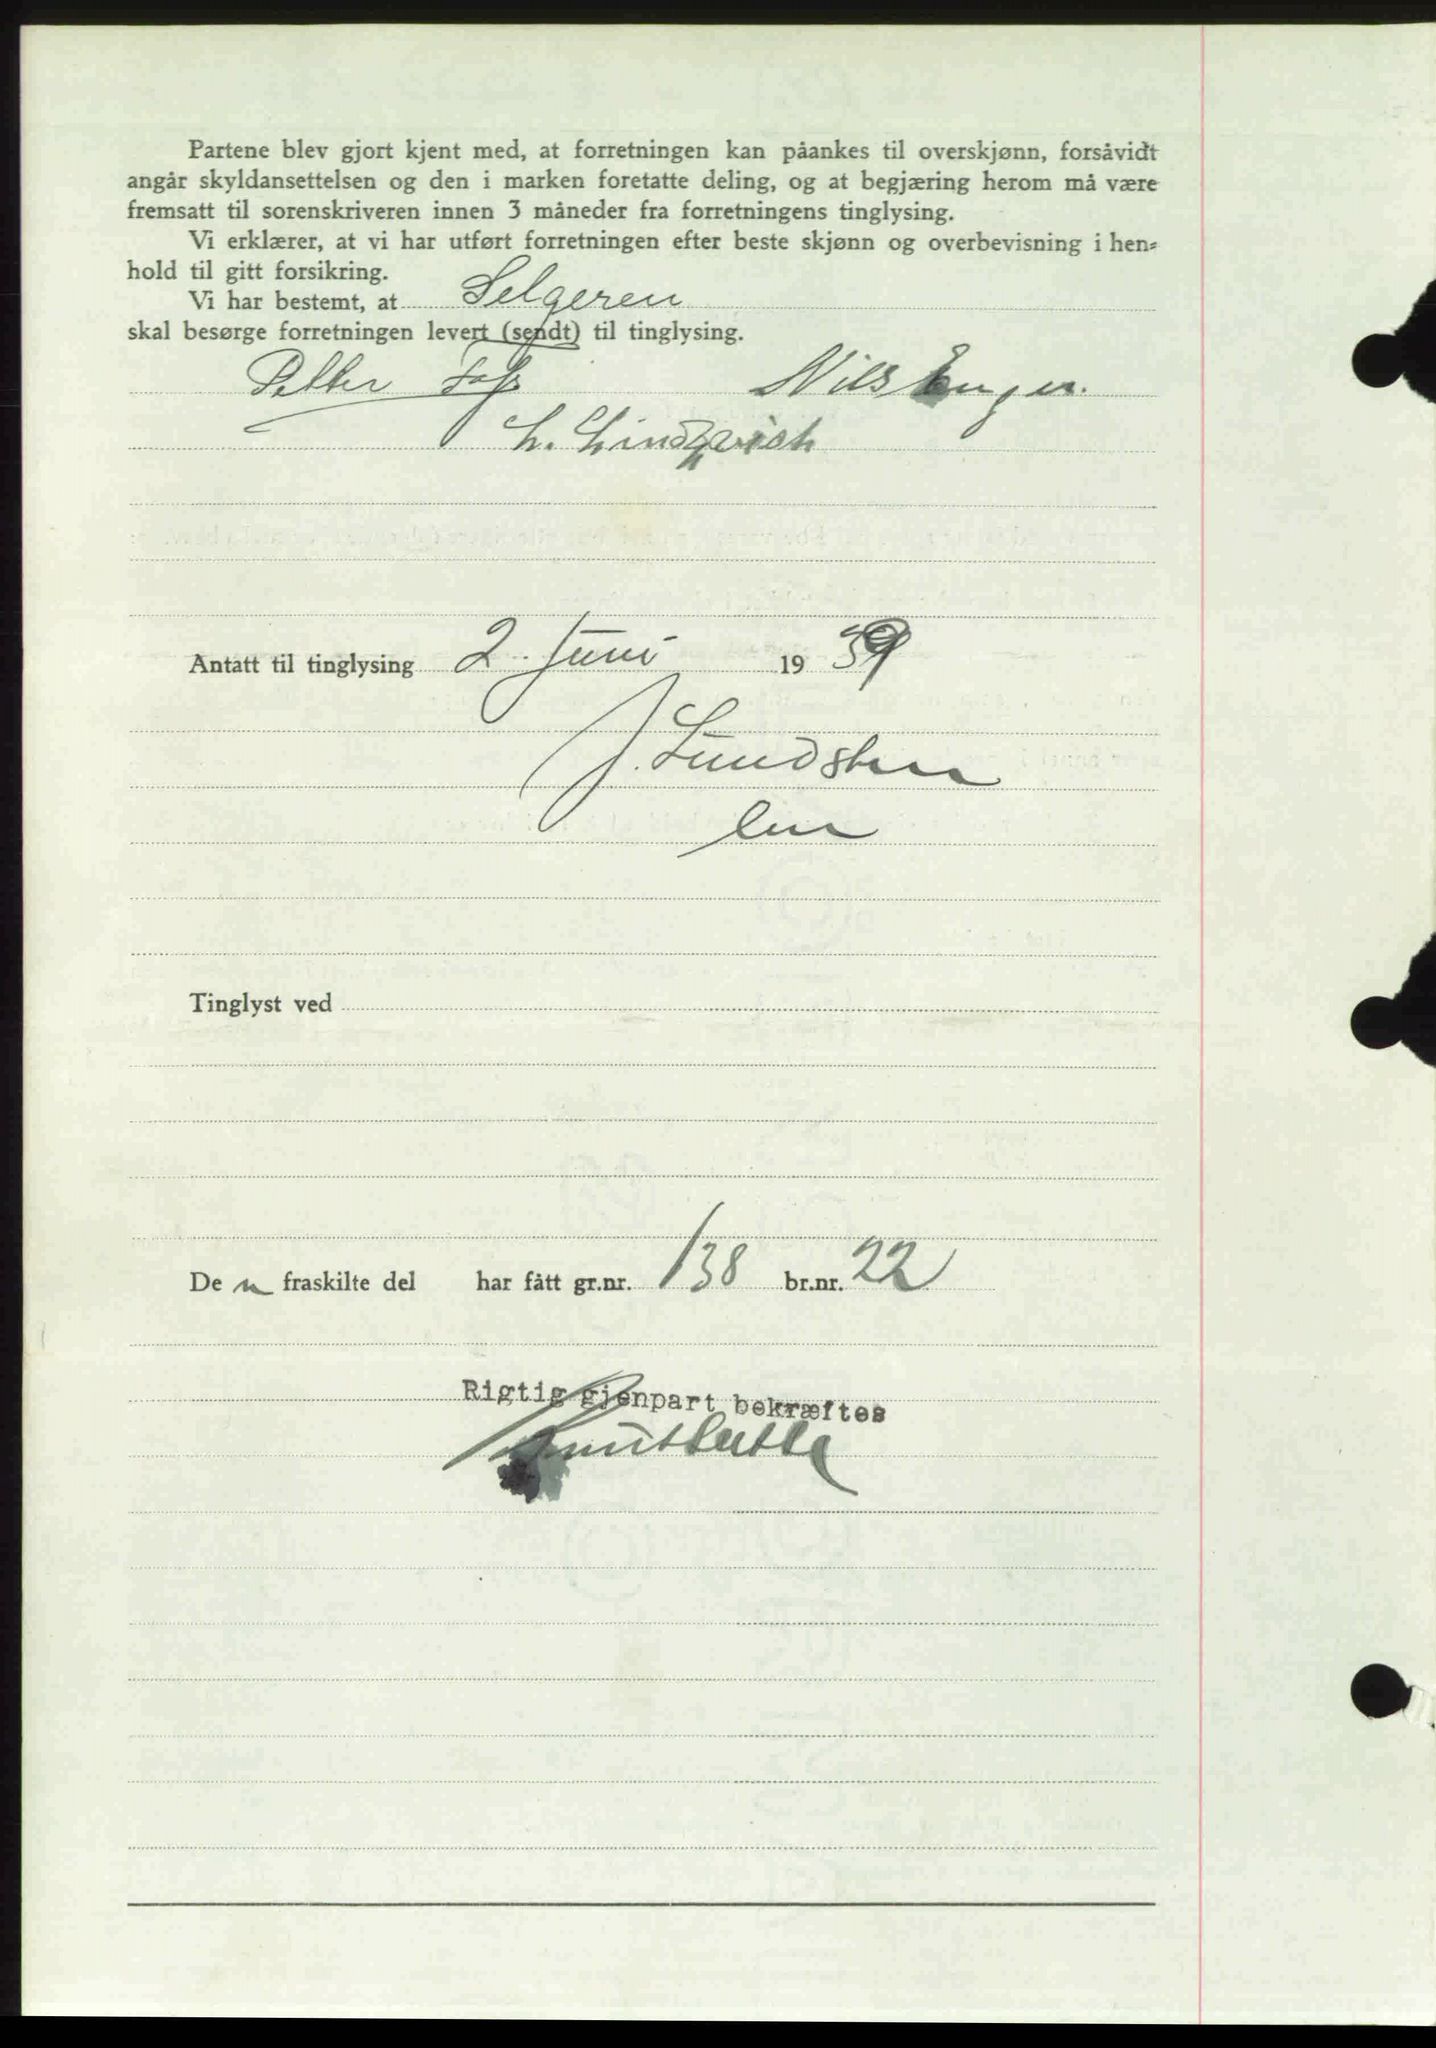 Partene blev gjort kjent med, at forretningen kan påankes til overskjønn, forsåvidt
angår skyldansettelsen og den i marken foretatte deling, og at begjæring herom må være
fremsatt til sorenskriveren innen 3 måneder fra forretningens tinglysing.
Vi erklærer, at vi har utført forretningen efter beste skjønn og overbevisning i hen-
hold til gitt forsikring.
Vi har bestemt, at Selgeren
skal besørge forretningen levert (sendt) til tinglysing.
Petter Nils
L. Lindqvist
Antatt til tinglysing 2. Juni 1939
J. Sundsten
Tinglyst ved
De n fraskilte del har fått gr.nr. 138 br.nr. 22
Rigtig gjenpart bekræftes